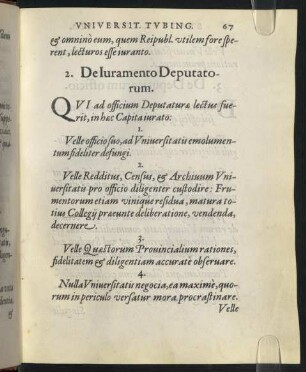 VNIVERSIT. TVBING. 67
& omninò eum, quem Reipubl. vtilem fore spe-
rent, lecturos esse iuranto.
2. De Iuramento Deputato-
rum.
QVI ad officium Deputaturæ lectus fue-
rit, in hæc Capita iurato:
1.
Velle officio suo, ad Vniuersitatis emolumen-
tum fideliter defungi.
2.
Velle Redditus, Census, & Archiuum Vni-
uersitatis pro officio diligenter custodire: Fru-
mentorum etiam vinique residua, matura to-
tius Collegij præeunte deliberatione, vendenda,
decernere.
3.
Velle Quæstorum Prouincialium rationes,
fidelitatem & diligentiam accuratè obseruare.
4.
Nulla Vniuersitatis negocia, ea maximè, quo-
rum in periculo versatur mora, procrastinare.
Velle